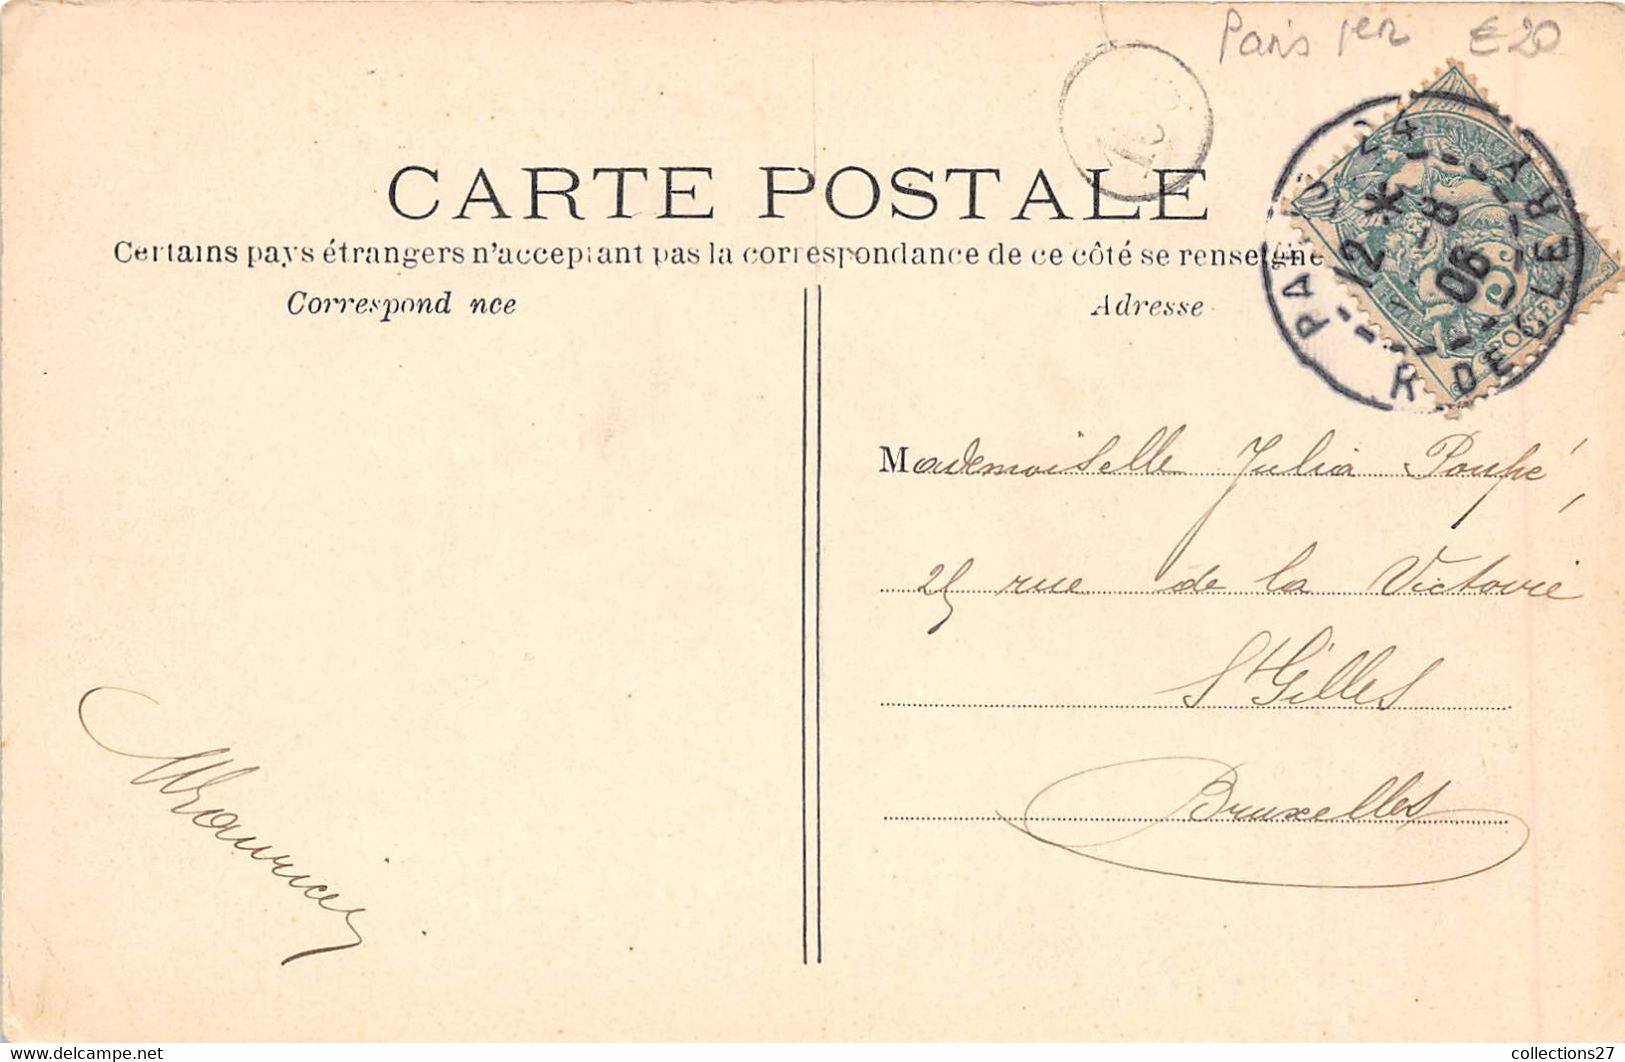 Paris 1er €20
CARTE POSTALE
Certains pays étrangers n'acceptant pas la correspondance de ce côté se renseigne
Correspond nce
Adresse
PARIS 24
R. DE CLERY
12 * -8
06
5
POSTES
Mademoiselle Julia Poupé,
25 rue de la Victoire
St Gilles
Bruxelles
Maurice
collections27
www.delcampe.net